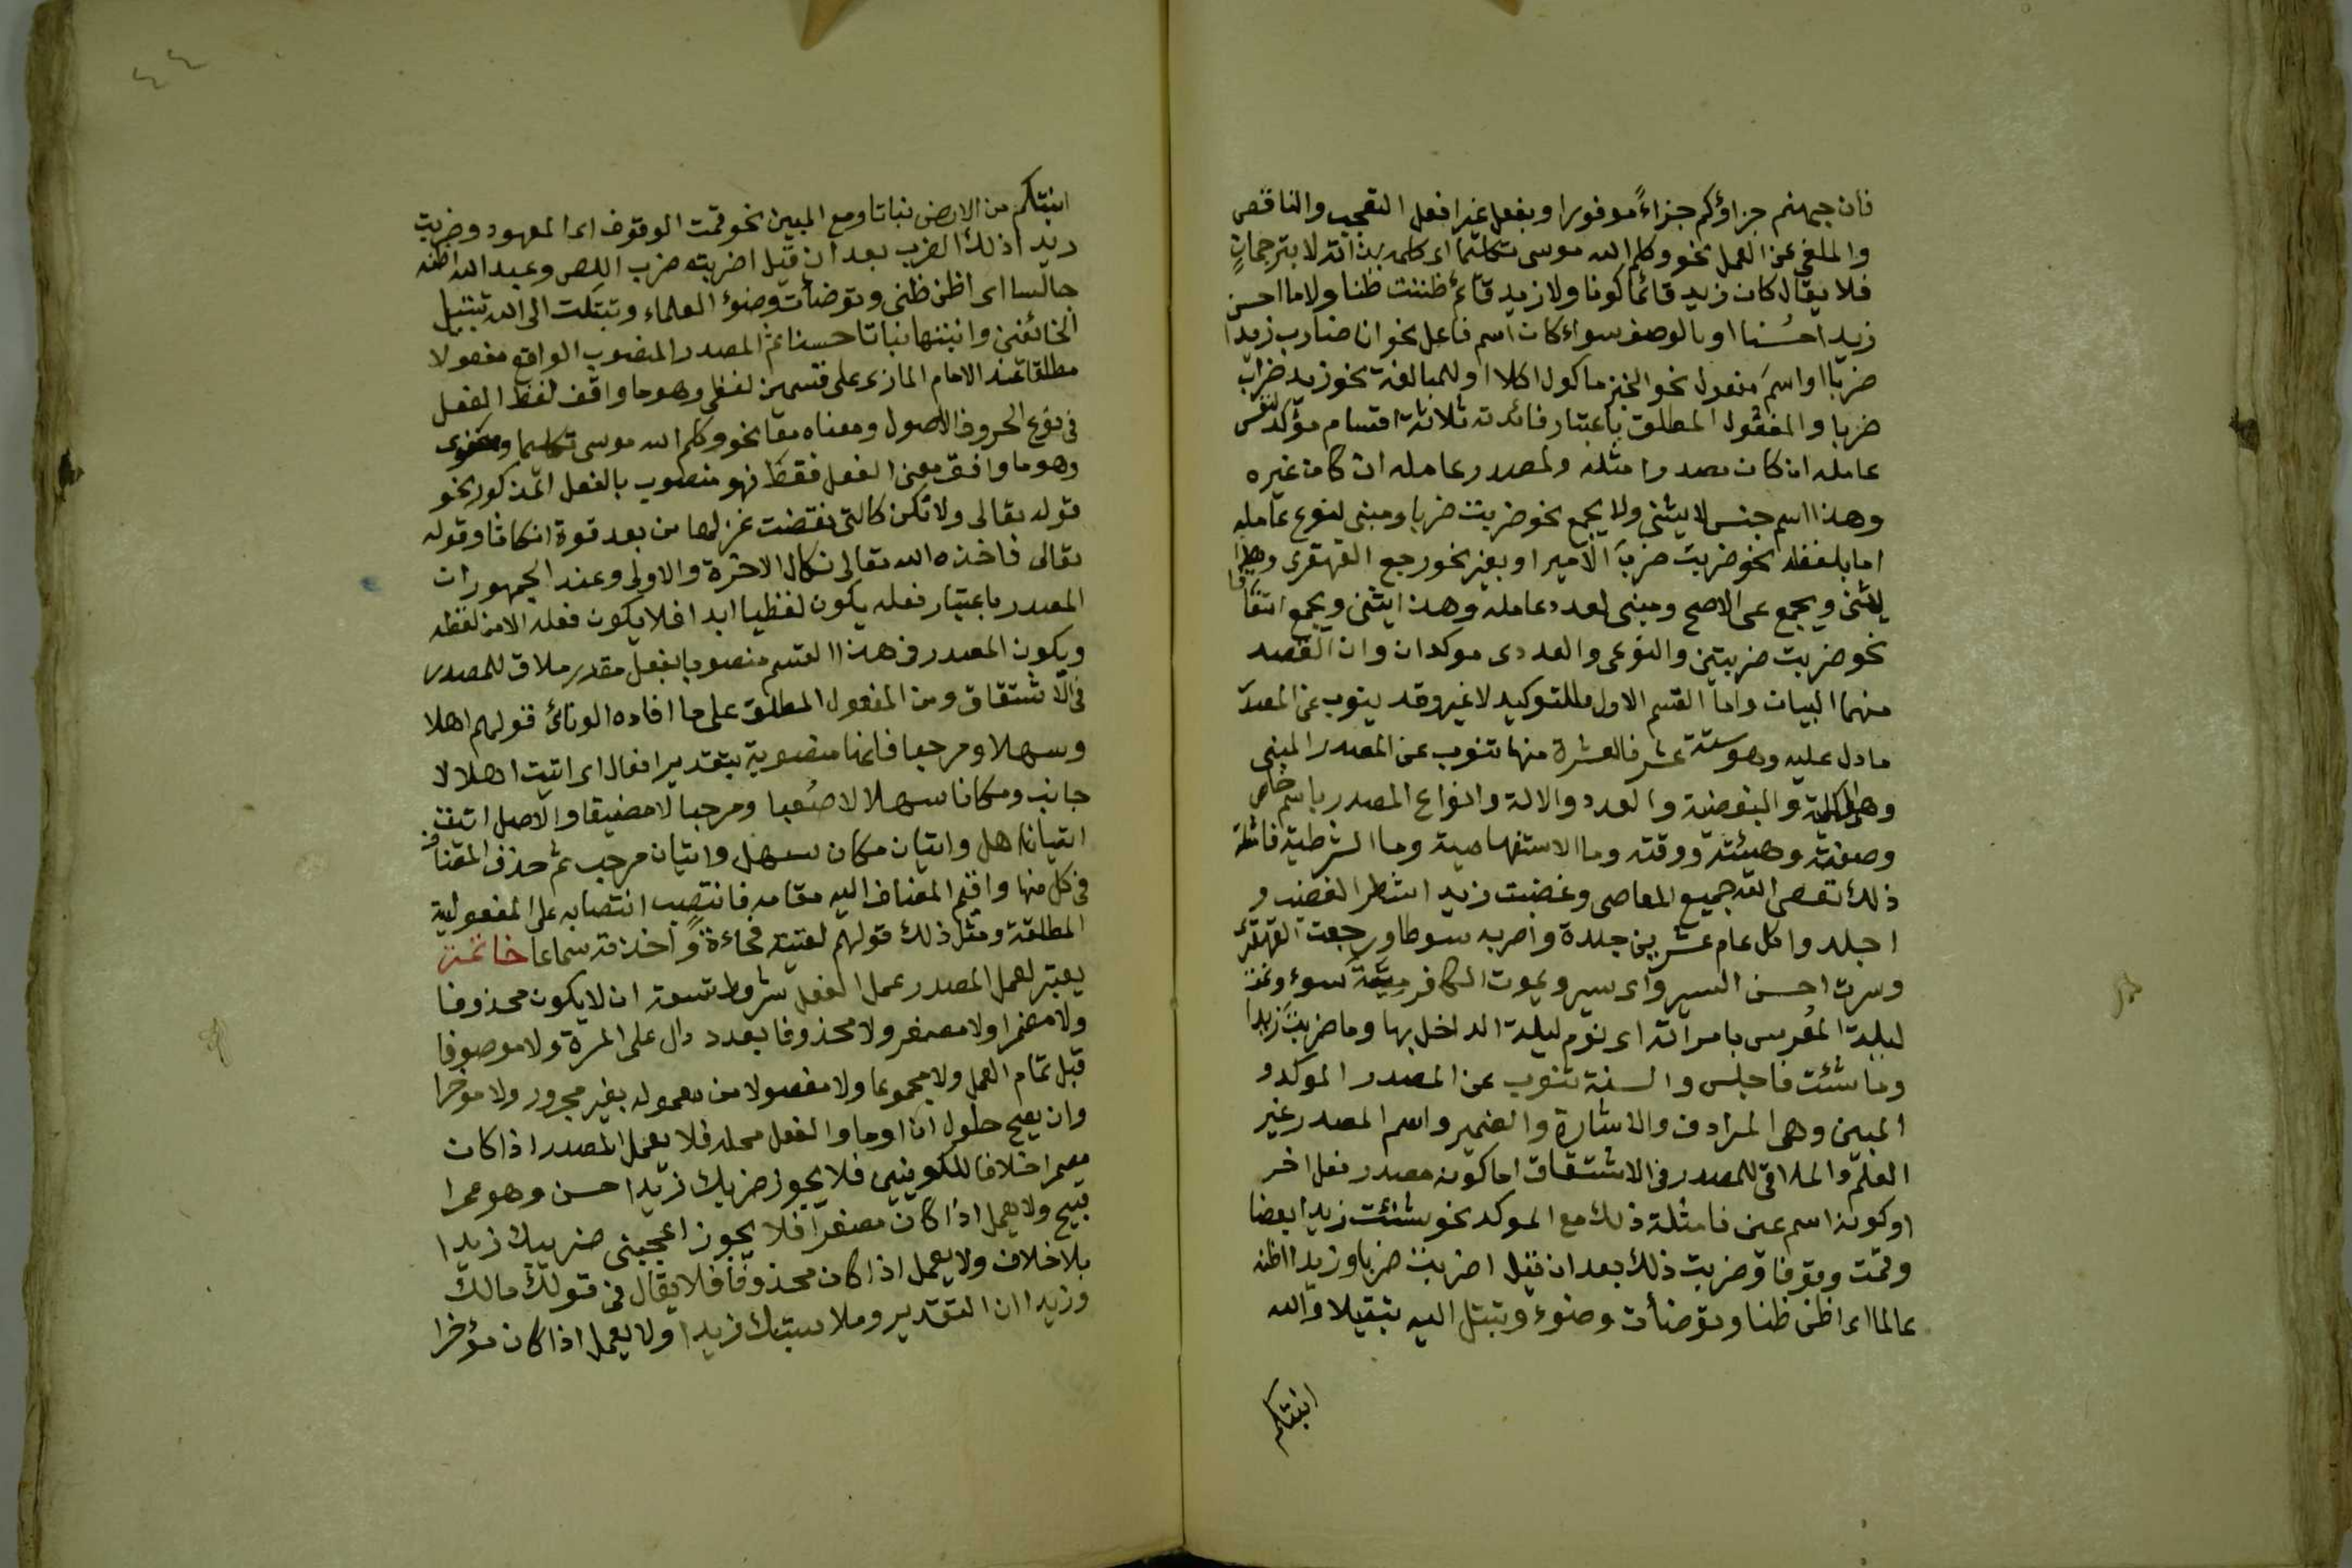 فان جهنم جزاؤكم جزاءً موفورا وبفعل غير افعل التعجب والناقص
والملغى عن العمل نحو وكلم الله موسى تكليما اى كلمه بذاته لا بترجمان
فلا يقال كان زيد قائما كونا ولا زيد قائم ظننت ظنا ولا ما احسن
زيدا حُسنا او بالوصف سواء كان اسم فاعل نحو انا ضارب زيدا
ضربا او اسم مفعول نحو الخبز ماكول اكلا او للمبالغة نحو زيد ضراب
ضربا والمفعول المطلق باعتبار فائدته ثلاثة اقسام مؤكد لنفس
عامله ان كان مصدرا مثله ولمصدر عامله ان كان غيره
وهذا اسم جنس لا يثنى ولا يجمع نحو ضربت ضربا ومبنى لنوع عامله
اما بلفظه نحو ضربت ضربَ الامير او بغيره نحو رجع القهقرى وهذا
يثنى ويجمع على الاصح ومبنى لعدد عامله وهذا يثنى ويجمع اتفاقا
نحو ضربت ضربتين والنوعى والعددى موكدان وان القصد
منهما البيان واما القسم الاول فللتوكيد لا غير وقد ينوب عن المصدر
ما دل عليه وهو ستة عشر فالعشرة منها تنوب عن المصدر المبنى
وهى الكلية والبعضية والعدد والالة وانواع المصدر باسم خاص
وصفته وهيئته ووقته وما الاستفهامية وما الشرطية فامثلة
ذلك تعصى الله جميع المعاصى وغضبت زيد اشطر الغضب و
اجلد واكل عام عشرين جلدة واضربه سوطا ورجعت القهقرى
وسرت احسن السير واى سير ويموت الكافر ميتة سوء ونمت
ليلة المعرس بامراته اى نوم ليلة الداخل بها وما ضربت زيدا
وما شئت فاجلس والستة تنوب عن المصدر الموكد و
المبين وهى المرادف والاشارة والضمير واسم المصدر غير
العلم والملاقى للمصدر فى الاشتقاق اما كونه مصدر فعل اخر
او كونه اسم عين فامثلة ذلك مع الموكد نحو شنئت زيدا بغضا
وقمت وقوفا وضربت ذلك بعد ان قيل اضربت ضربا وزيدا اظنه
عالما اى اظن ظنا وتوضأت وضوء وتبتل اليه تبتيلا والله
انبتكم
٤٤
انبتكم من الارض نباتا ومع المبين نحو قمت الوقوف اى المعهود وضربت
زيدا ذلك الضرب بعد ان قيل اضربته ضرب اللص وعبد الله اظنه
جالسا اى اظن ظنى وتوضأت وضوء العلماء وتبتلت الى الله تبتيل
الخائفين وانبتها نباتا حسنا ثم المصدر المنصوب الواقع مفعولا
مطلقا عند الامام المازنى على قسمين لفظى وهو ما وافق لفظ الفعل
فى نوع الحروف الاصول ومعناه معا نحو وكلم الله موسى تكليما ومعنوى
وهو ما وافق معنى الفعل فقط فهو منصوب بالفعل المذكور نحو
قوله تعالى ولا تكن كالتى نقضت غزلها من بعد قوة انكاثا وقوله
تعالى فاخذه الله تعالى نكال الاخرة والاولى وعند الجمهور ان
المصدر باعتبار فعله يكون لفظيا ابدا فلا يكون فعله الا من لفظه
ويكون المصدر فى هذا القسم منصوبا بفعل مقدر ملاق للمصدر
فى الاشتقاق ومن المفعول المطلق على ما افاده الونائى قولهم اهلا
وسهلا ومرحبا فانها منصوبة بتقدير افعال اى اتيت اهلا لا
جانب ومكانا سهلا لا صعبا ومرحبا لا مضيقا والاصل اتيت
اتيان اهل واتيان مكان سهل واتيان مرحب ثم حذف المضاف
فى كل منها واقيم المضاف اليه مقامه فانتصب انتصابه على المفعولية
المطلقة ومثل ذلك قولهم لقيته فجاءة واخذته سماعا خاتمة
يعتبر لعمل المصدر عمل الفعل شروط تسعة ان لا يكون محذوفا
ولا مضمرا ولا مصغر ولا محذوفا بعدد دال على المرة ولا موصوفا
قبل تمام العمل ولا مجموعا ولا مفصولا من معموله بغير مجرور ولا موخرا
وان يصح حلول ان او ما والفعل محله فلا يعمل المصدر اذا كان
مضمرا خلافا للكوفيين فلا يجوز ضربك زيدا حسن وهو عمرا
قبيح ولا يعمل اذا كان مصغرا فلا يجوز اعجبنى ضريبك زيدا
بلا خلاف ولا يعمل اذا كان محذوفا فلا يقال فى قولك مالك
وزيدا ان التقدير وملابستك زيدا ولا يعمل اذا كان مؤخرا